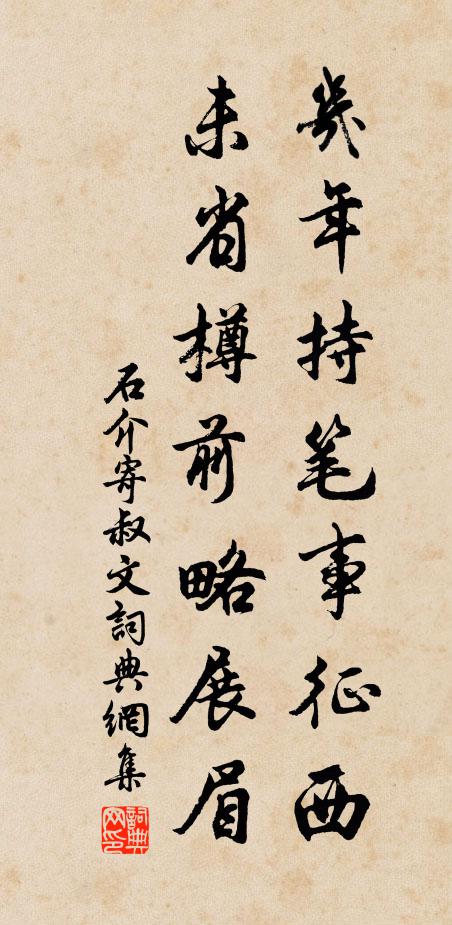 幾年持笔事征西
未省樽前略展眉
石介寄叔文詞典網集
詞典网印